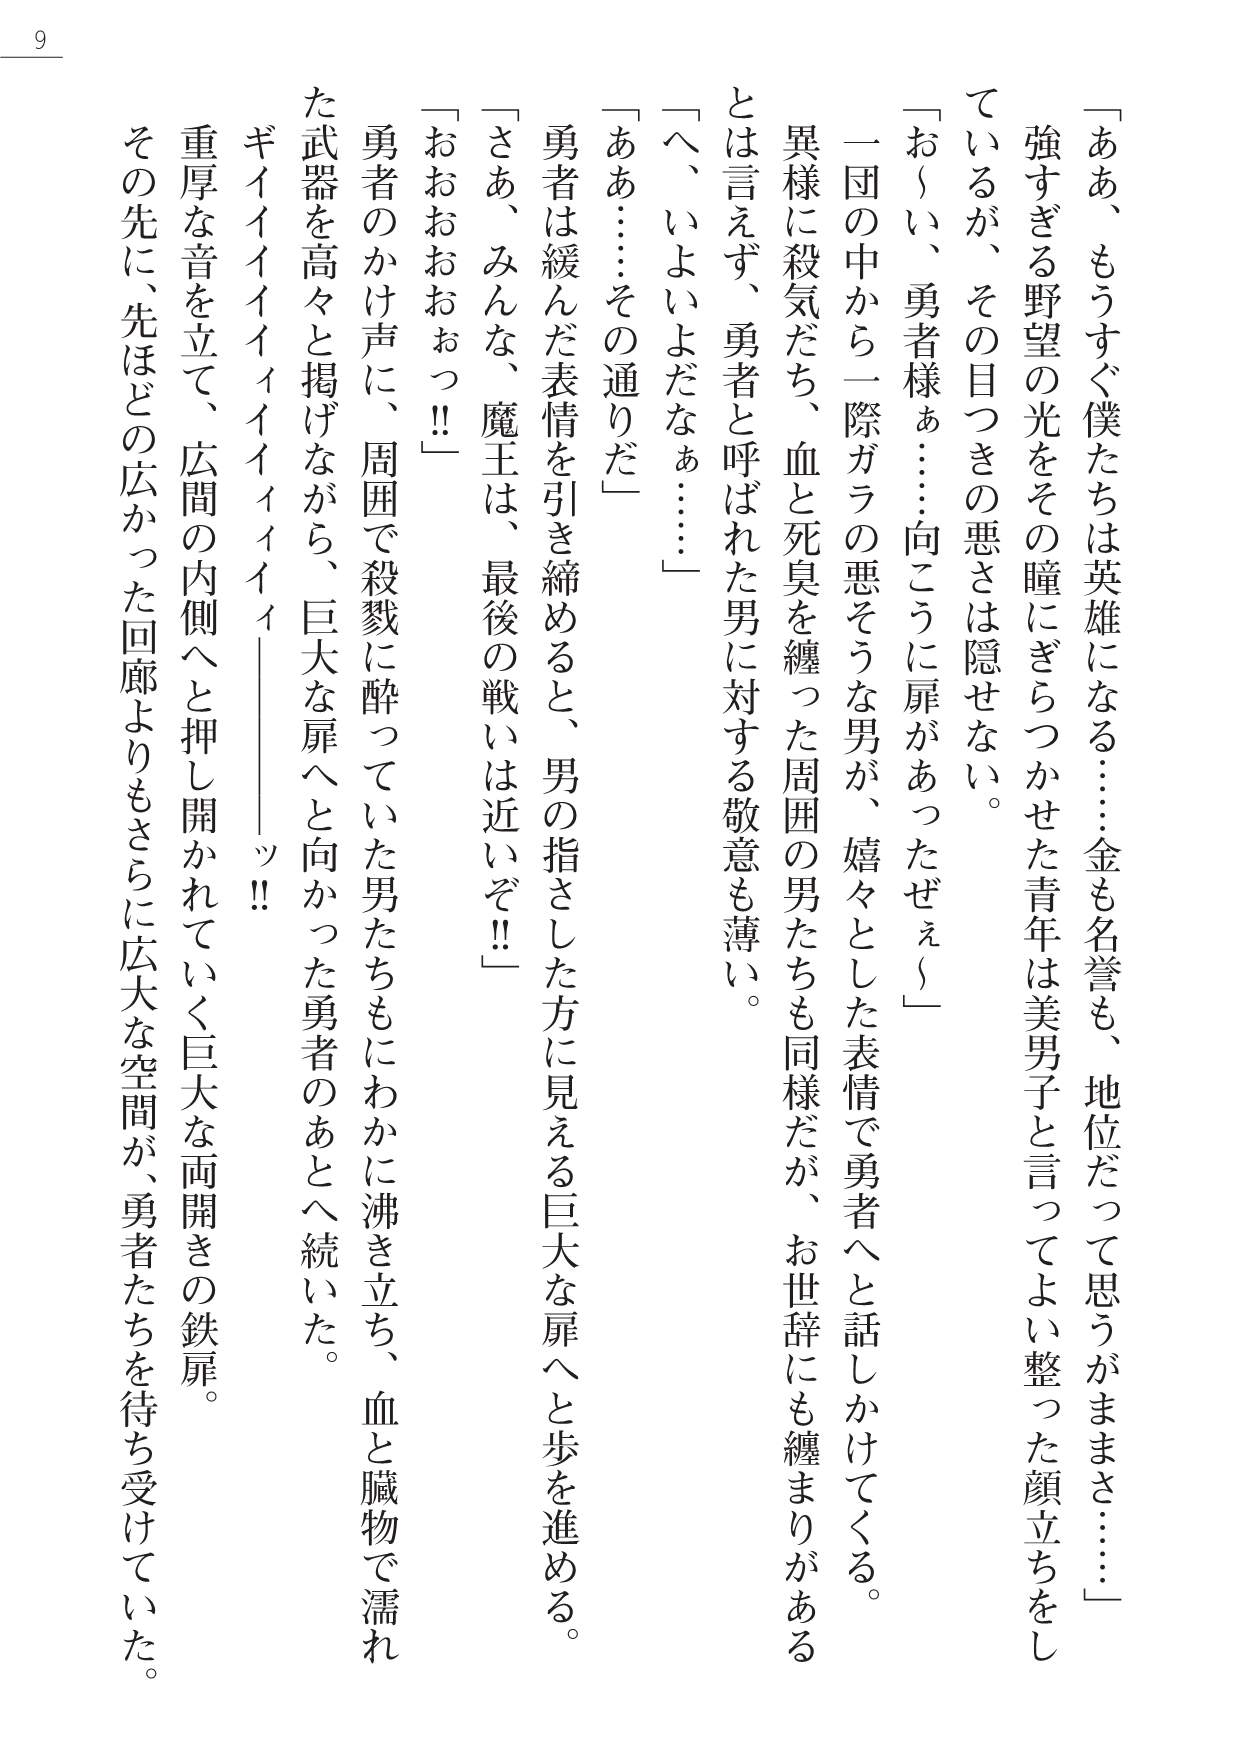 9
「ああ、もうすぐ僕たちは英雄になる……金も名誉も、地位だって思うがままさ……」
強すぎる野望の光をその瞳にぎらつかせた青年は美男子と言ってよい整った顔立ちをし
ているが、その目つきの悪さは隠せない。
「お～い、勇者様ぁ……向こうに扉があったぜぇ～」
一団の中から一際ガラの悪そうな男が、嬉々とした表情で勇者へと話しかけてくる。
異様に殺気だち、血と死臭を纏った周囲の男たちも同様だが、お世辞にも纏まりがある
とは言えず、勇者と呼ばれた男に対する敬意も薄い。
「へ、いよいよだなぁ……」
「ああ……その通りだ」
勇者は緩んだ表情を引き締めると、男の指さした方に見える巨大な扉へと歩を進める。
「さあ、みんな、魔王は、最後の戦いは近いぞ!!」
「おおおおおぉっ!!」
勇者のかけ声に、周囲で殺戮に酔っていた男たちもにわかに沸き立ち、血と臓物で濡れ
た武器を高々と掲げながら、巨大な扉へと向かった勇者のあとへ続いた。
ギイイイイイィイイィィイィ―――――ッ!!
重厚な音を立て、広間の内側へと押し開かれていく巨大な両開きの鉄扉。
その先に、先ほどの広かった回廊よりもさらに広大な空間が、勇者たちを待ち受けていた。